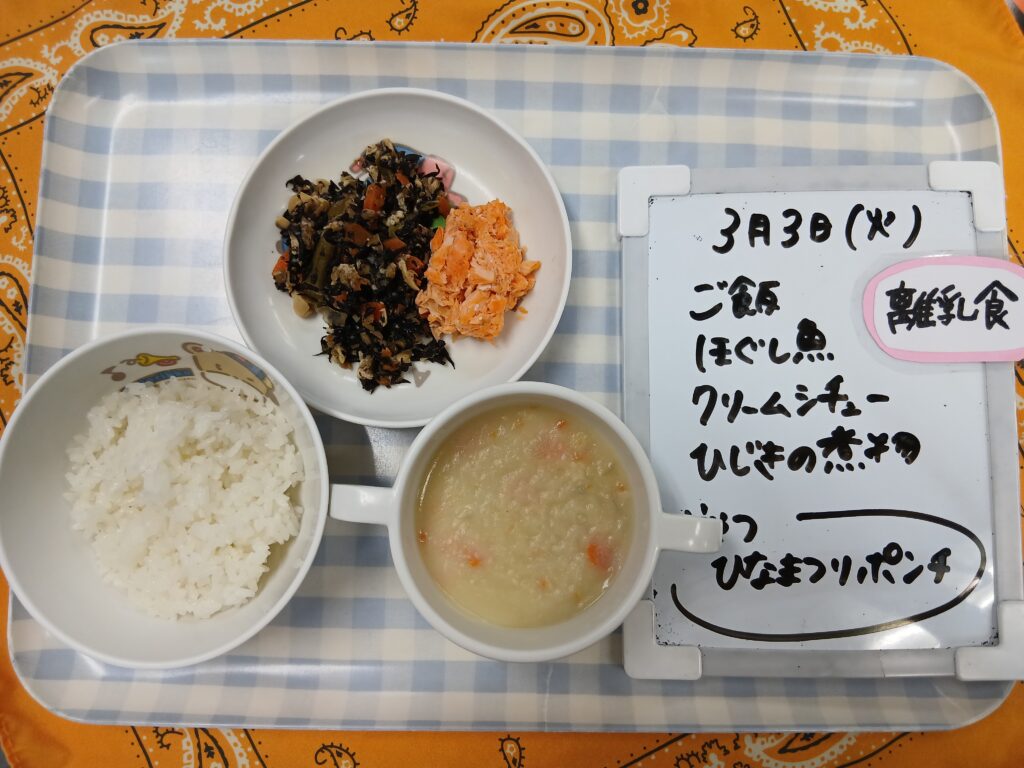 3月3日(火)
離乳食
ご飯
ほぐし魚
クリームシチュー
ひじきの煮物
おやつ
ひなまつりポンチ